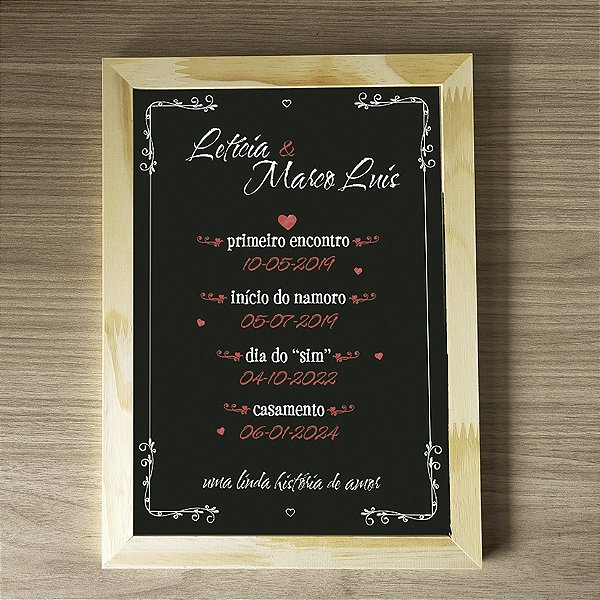 Letícia &
Marco Luis
primeiro encontro
10-05-2019
início do namoro
05-07-2019
dia do “sim”
04-10-2022
casamento
06-01-2024
uma linda história de amor